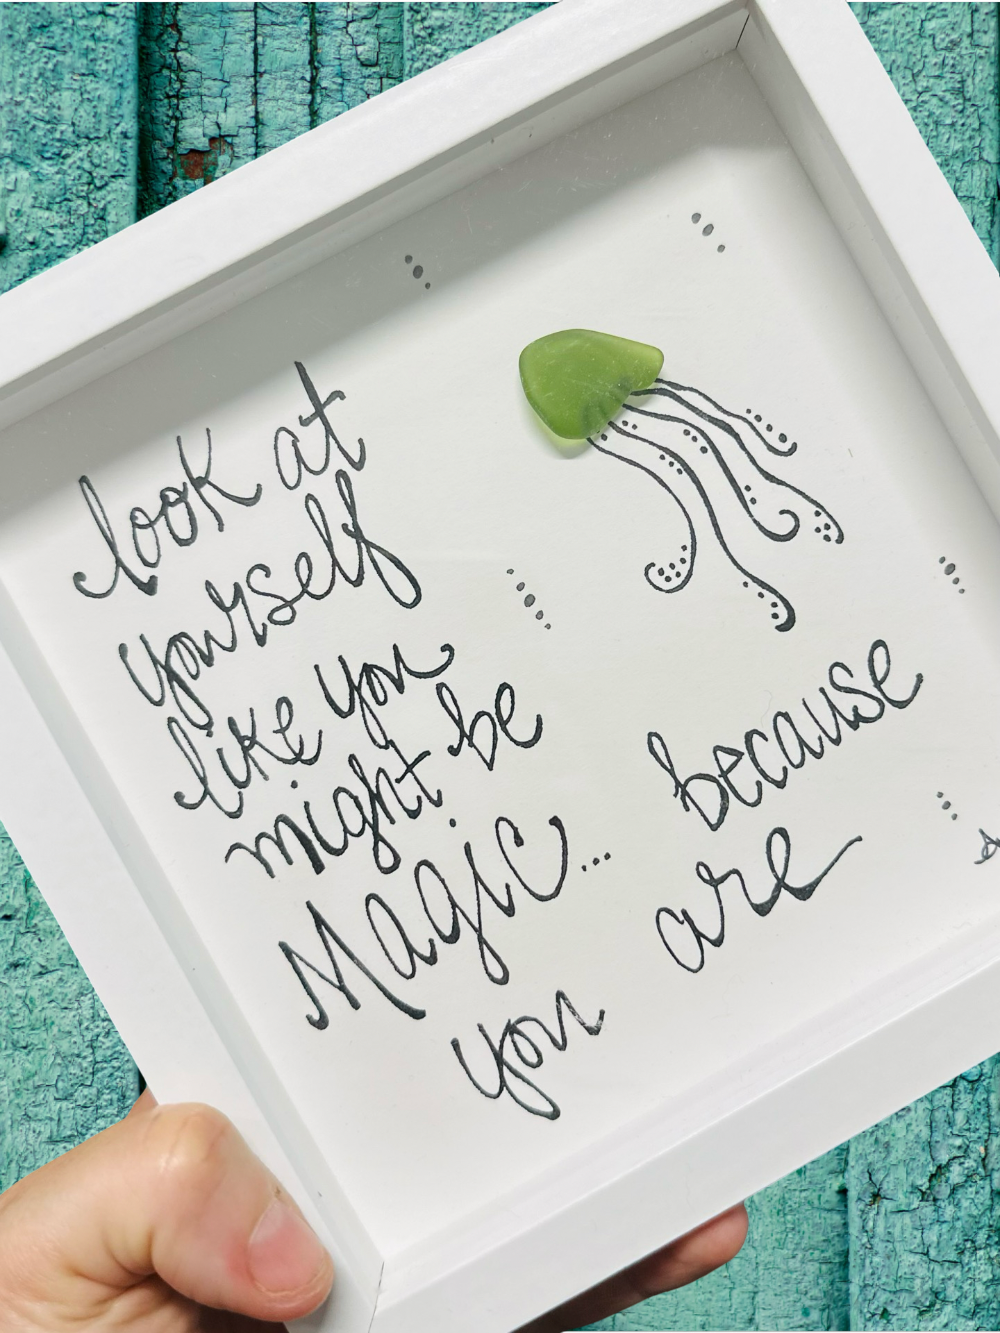 look at
yourself
like you
might be
Magic... because
you are